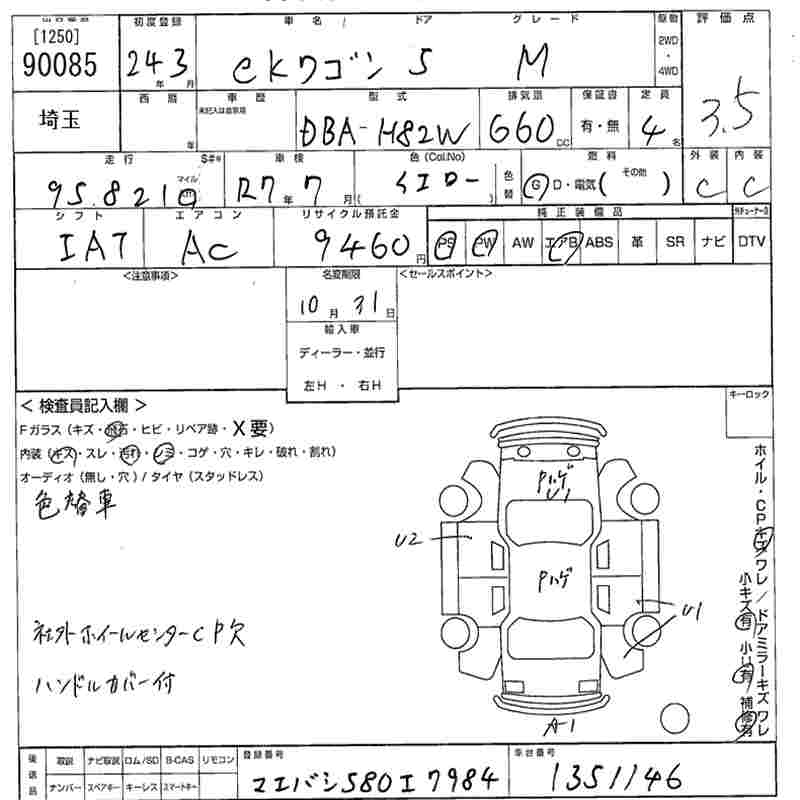 [1250]
90085
初度登録 車名 ドア グレード 駆動 評価点
24年3月 eKワゴン 5 M 2WD・4WD 3.5
埼玉
西暦 年 車歴 未記入は自家用 型式 排気量 保証書 定員
DBA-H82W 660 CC 有・無 4名
走行 S#* 車検 色(Col.No) 色替 燃料 外装 内装
95,821 マイル km R7年7月 ( イエロー ) G D・電気( その他 ) C C
シフト エアコン リサイクル預託金 純正装備品
IAT AC 9460円 PS PW AW エアB ABS 革 SR ナビ DTV
<注意事項> 名変期限 <セールスポイント>
10月31日
輸入車
ディーラー・並行
左H・右H
<検査員記入欄> キーロック
Fガラス(キズ・飛石・ヒビ・リペア跡・X要)
内装(キズ・スレ・汚れ・シミ・コゲ・穴・キレ・破れ・割れ)
オーディオ(無し・穴)/タイヤ(スタッドレス)
色替車
社外ホイールセンターCP欠
ハンドルカバー付
Pハゲ
U1
U2
Pハゲ
U1
A-1
ホイル・CPキズワレ/ドアミラーキズワレ
小キズ有 小U有 補修有
後送品 取説 ナビ取説 ロム/SD B-CAS リモコン 登録番号 車台番号
ナンバー スペアキー キーレス スマートキー マエバシ580エ7984 1351146